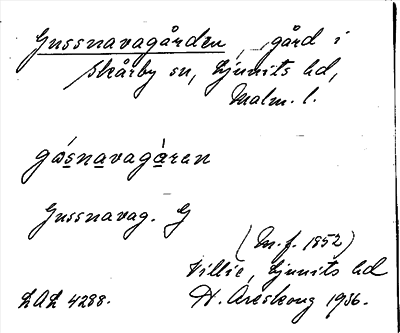 Gussnavagården, gård i
Skårby sn, Ljunits hd,
Malm. l.
gásnavagàran
Gussnavag. G
(M.f. 1852)
Villie, Ljunits hd
LAL 4288. H. Areskoug 1936.